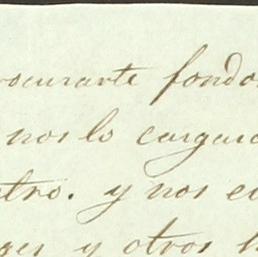 rocurarte fondo
nos lo cargar
tro. y nos e
ges y otros h